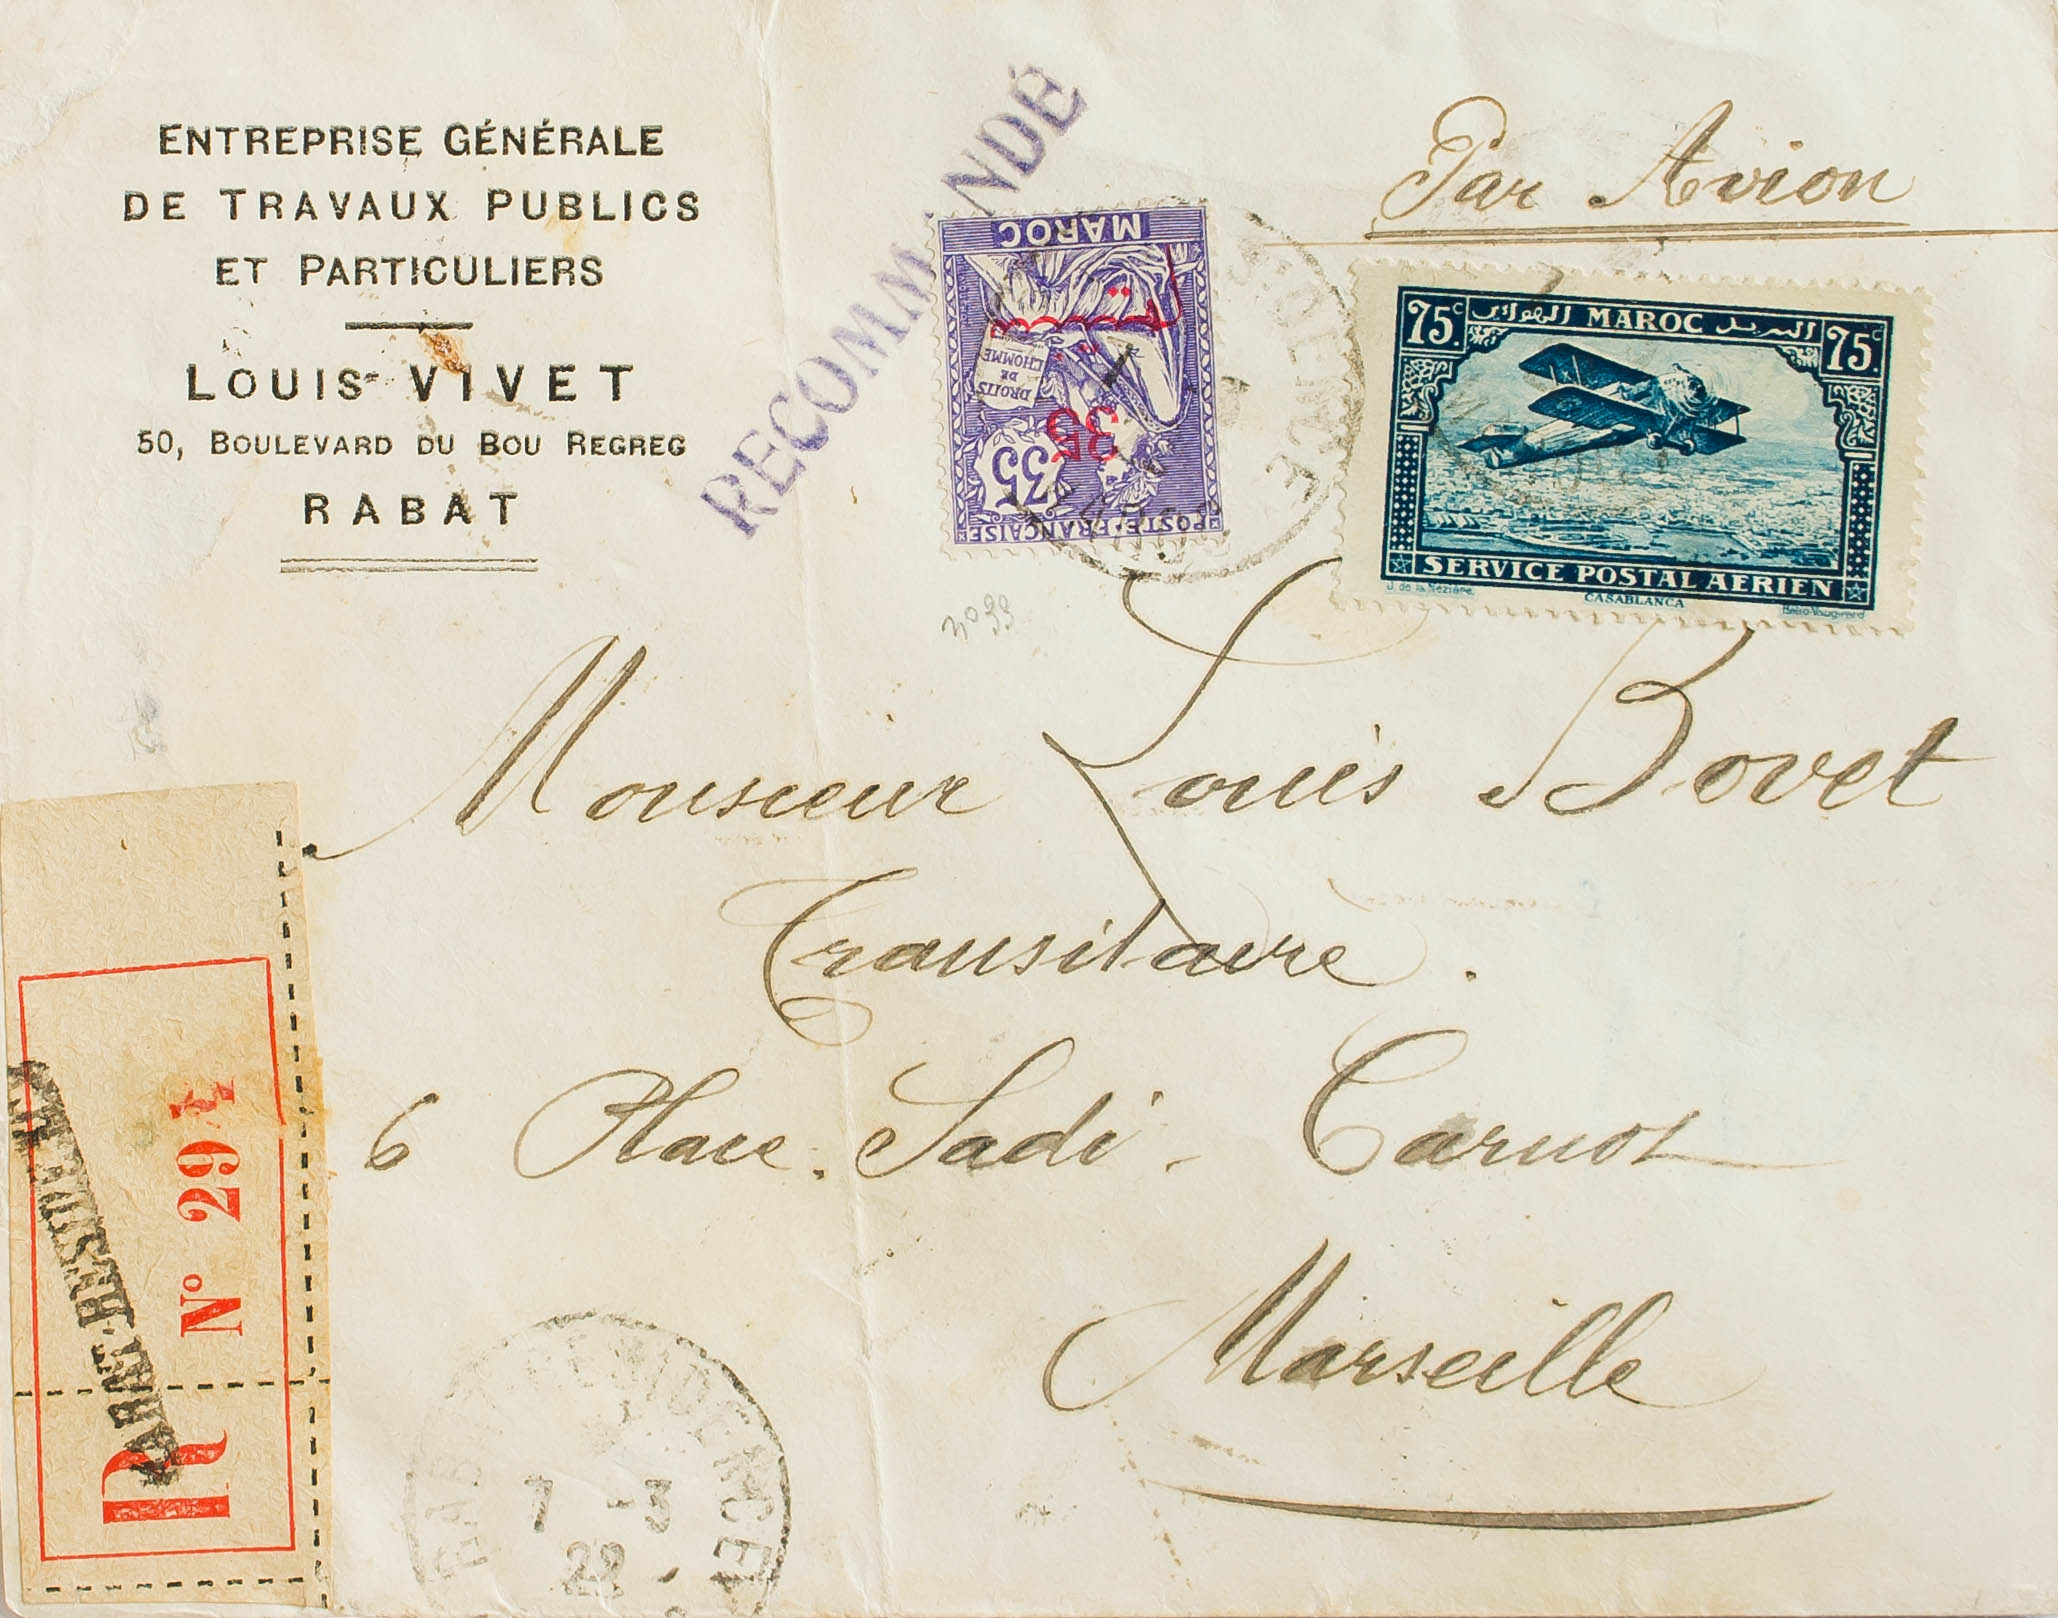 ENTREPRISE GÉNÉRALE
DE TRAVAUX PUBLICS
ET PARTICULIERS
LOUIS VIVET
50, BOULEVARD DU BOU REGREG
RABAT
RECOMMANDÉ
MAROC
DROITS
DE
L'HOMME
35
35
POSTE FRANÇAISE
Par Avion
75c. MAROC البريد الهوائي 75c.
SERVICE POSTAL AERIEN
J. de la Nézière
CASABLANCA
Hélio-Vaugirard
n° 99
Monsieur Louis Bovet
Transitaire.
6 Place Sadi-Carnot
Marseille
R N° 29
RABAT-RÉSIDENCE
RABAT RESIDENCE
7 -3
22